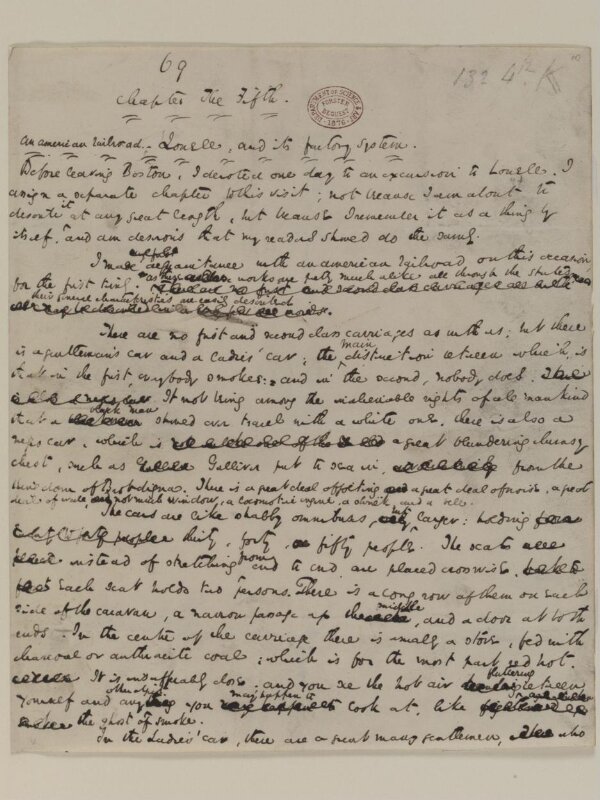 69
132 4th K
DEPARTMENT OF SCIENCE & ART
FORSTER BEQUEST
1876
Chapter The Fifth.
An american Railroad. Lowell, and its factory system.
Before leaving Boston, I devoted one day to an excursion to Lowell. I
assign a separate chapter to this visit; not because I am about to
describe it at any great length, but because I remember it as a thing by
itself, and am desirous that my readers should do the same.
I made my first acquaintance with an american Railroad on this occasion
for the first time. As these works are pretty much alike all through the states
their general characteristics are easily described
There are no first and second class carriages as with us; but there
is a gentlemen's car and a ladies' car; the main distinction between which, is
that in the first, everybody smokes: and in the second, nobody does.
It not being among the inalienable rights of all mankind
that a black man should ever travel with a white one, there is also a
negro car, which is a great blundering clumsy
chest, such as Gulliver put to sea in, from the
kingdom of Brobdignag. There is a great deal of jolting a great deal of noise, a great
deal of wall, not much window, a locomotive engine, a shriek, and a bell.
The cars are like shabby omnibuses, but larger: holding
thirty, forty, fifty people. The seats
instead of stretching from end to end, are placed crosswise.
Each seat holds two persons. There is a long row of them on each
side of the caravan, a narrow passage up the middle, and a door at both
ends. In the centre of the carriage there is usually a stove, fed with
charcoal or anthracite coal; which is for the most part red hot.
It is insufferably close; and you see the hot air fluttering between
yourself and any other object you may happen to look at, like
the ghost of smoke.
In the ladies' car, there are a great many gentlemen, who